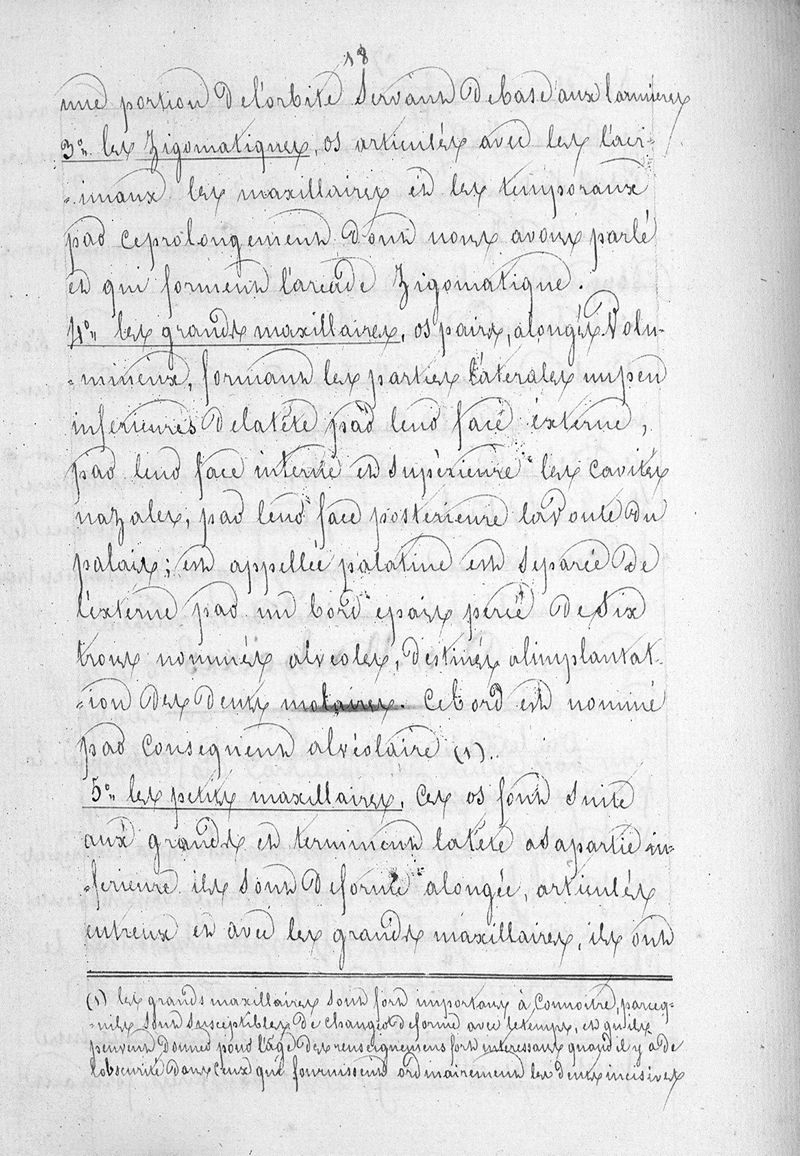 18
une portion de l'orbite servant de base aux larmieres
3°" les Zigomatiques, os articulés avec les lacri-
-maux les maxillaires et les temporaux
par ce prolongement dont nous avons parlé
et qui forment l'arcade Zigomatique.
4°" les grands maxillaires, os pairs, alongés Volu-
-mineux, formant les parties latérales un peu
inferieures de la tête par leur face éxterne,
par leur face interne et supèrieure les cavités
nazales, par leur face posterieure la voute du
palais; est appellée palatine est separée de
l'éxterne par un bord epais percé de Six
trous nommés alveoles, destinés a l'implantat-
-ion des dents molaires. Ce bord est nommé
par consequent alvéolaire (1).
5°" les petits maxillaires, ces os font suite
aux grands et terminent la tête a sa partie in-
-ferieure ils sont de forme alongée, articulés
entreux et avec les grands maxillaires, ils ont
(1) les grands maxillaires sont fort importans à Connoitre, parceq-
-uils sont susceptibles de changer de forme avec le temps, et qu'ils
peuvent donner pour l'âge des renseignemens fort interessans quand il y a de
l'obscurité dans ceux que fournissent ordinairement les dents incisives